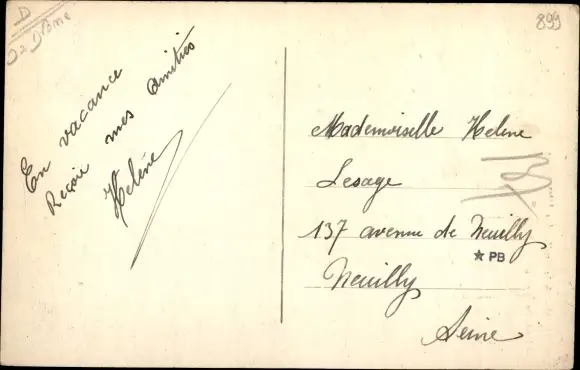 D
La Drôme
899
En vacance
Reçois mes amitiés
Helène
Mademoiselle Helene
Lesage
137 avenue de Neuilly
★ PB
Neuilly
Seine